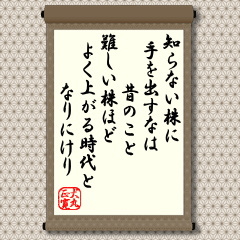 知らない株に
手を出すなは
昔のこと
難しい株ほど
よく上がる時代と
なりにけり
大丸
正富